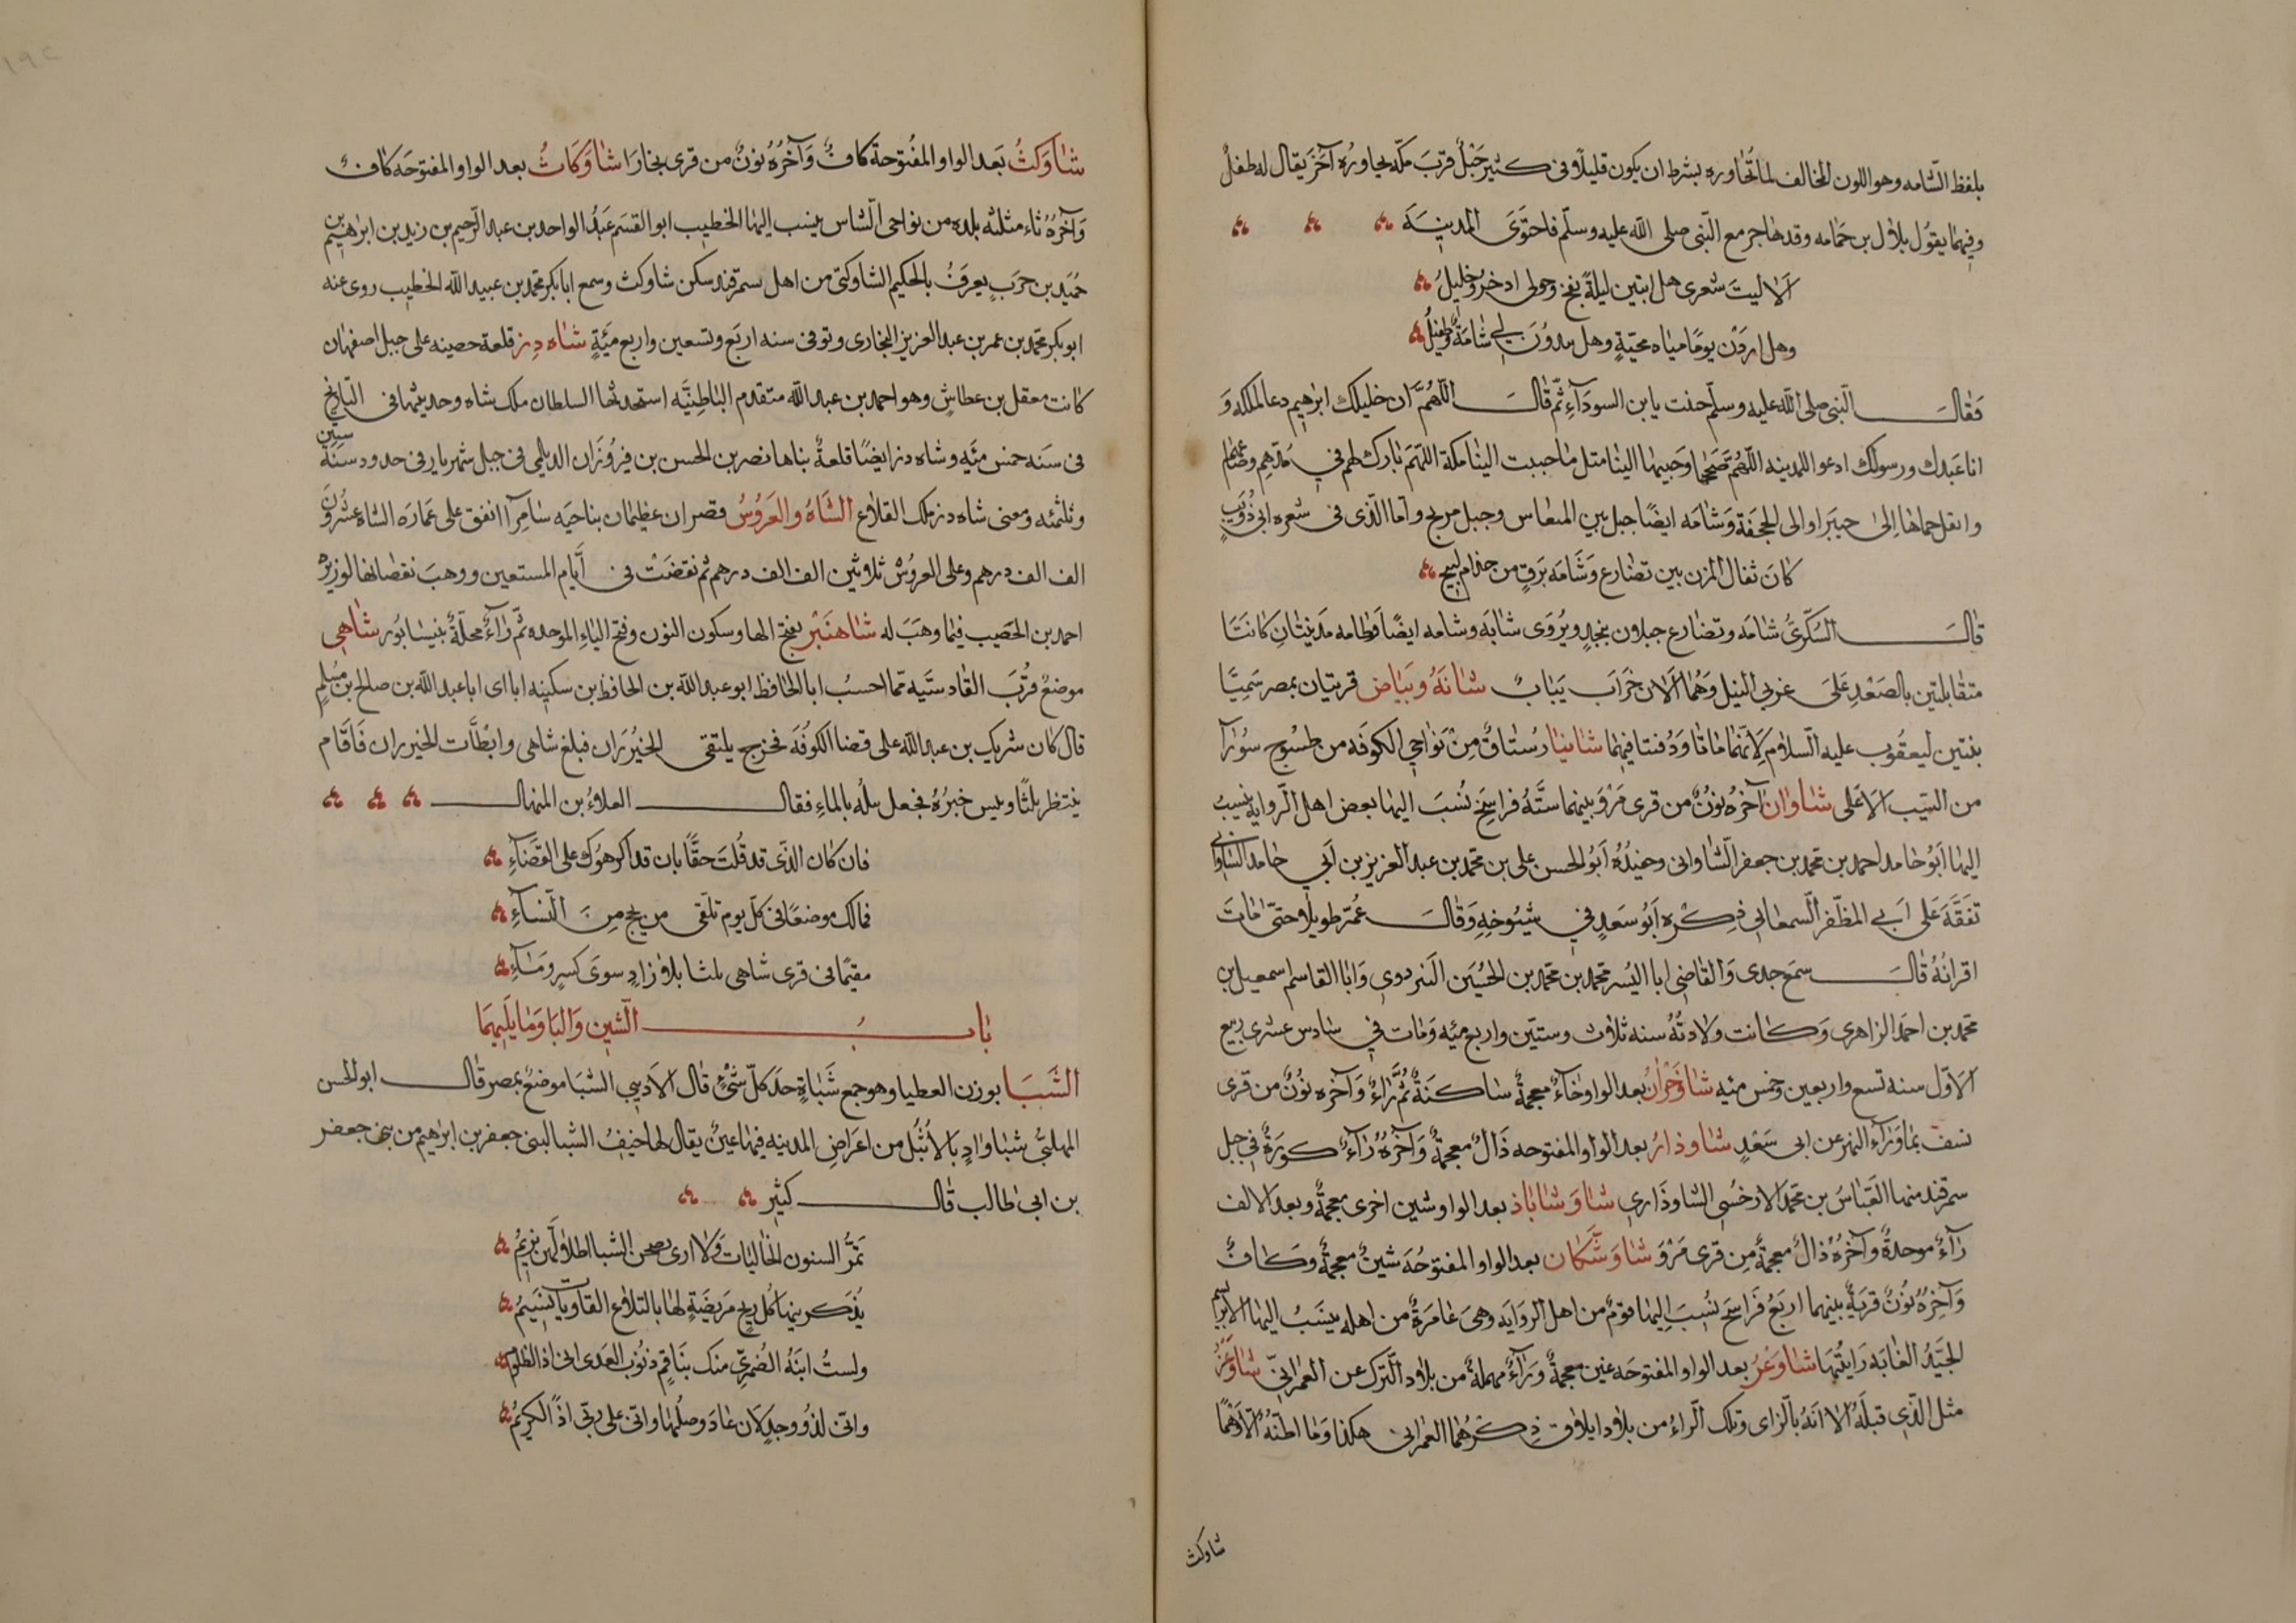 بلفظ الشامه وهو اللون المخالف لما تُجاوره بشرط ان يكون قليلًا فى كثير جَبَلٌ قربَ مكّه يجاورُه آخَرَ يقال له طفيلٌ
وفيهما يقوُل بلال بن حَمَامه وقد هَاجر مع النّبى صلى الله عليه وسلّم فاحتوَىَ المدينَةَ
اَلا ليتَ شعرى هل ابيتن ليلةً بفخ وحولى اذخرٌ وجليلُ
وهل اردَنْ يومًا مياه مجنّةٍ وهل يبدوُنَ لي شَامَةٌ وطفيلُ
فَقَالَ النّبى صلى الله عليه وسلّم حننت يا بن السودآءِ ثمّ قَالَ اللّهُمَّ ان خليلك ابرٰهيم دعا لمكه وَ
انا عَبدك ورسولك ادعو للمدينه اللّهُمّ صَحّحها وحَبّبها الينا مثل مَا حببت الينا مكة اللّهمّ بَارك لهم في مُدّهم وصَاعهم
وانقل حماهَا اِلىٰ خيبَر او الى الجحفَة وَشَامَه ايضًا جبل بين المنعاس وجبل مريخ واما الّذى فى شعره ابى ذُؤيبٍ
كانَ ثقال المزن بين تضَارع وَشَامَه بَرَقٍ من جذام لبيج
قَالَ السُكّرىُّ شَامَه وتضَارع جبلان بنجدٍ ويُروَى شابَه وشَامه ايضًا وَطَامه مَدينتانِ كانتَا
متقابلتين بالصَعْدِ عَلَى غربى النيل وَهُمَا الآن خرَابَ يَبَابُ شَانَهُ وبَيَاض قريتان بمصر سَمّيتا
بنتين ليعقوب عليه السّلام لانّهمَا مَاتا وَدُفنتا فيهمَا شَانيا رُستاقٌ مِنْ نَوَاحى الكوفَه من طسّوج سُورَآ
من السّيب الاعَلى شَاوَان آخرُه نونٌ من قرى مَرْوَ بينهما ستَّه فراسخ نُسبَ اليهَا بعض اهل الروايه ينسبُ
اليهَا اَبُو حَامد احمد بن محمّد بن جعفر الشاوانى وحفيدُهُ اَبُو الحسن على بن محمّد بن عبد العزيز بن اَبي حامد الشاوانى
تفَقَّهَ عَلى اَبي المظفّر السمعانى ذكره اَبُو سَعدٍ في شيُوخهِ وَقَالَ عُمّر طويلا وحتى مَاتَ
اقرانُهُ قَالَ سمعَ جدى وَالقاضى ابا اليُسر محمّد بن محمّد بن الحُسَين البزدوى وَابَا القاسم اسمعيل بن
محمّد بن احمَد الزاهرى وَكانت ولادتُهُ سنه ثلاث وستّين واربع مئه وَمَات في سَادس عشرى ربيع
الاوّل سنه تسع واربعين وخمس مئه شَاوخَرانُ بعد الواو خَاءٌ معجمةٌ سَاكنَةٌ ثُمَّ رَاءٌ وَآخره نُونٌ من قرى
نسف بمَا وَرَآءَ النهر عن ابى سَعْدٍ شَاوذارُ بعد الواو المفتوحه ذَالٌ معجمةٌ وَآخرُهُ رآءٌ كورَةٌ في جبل
سمرقند منها العَبّاسُ بن محمّد الارخسى الشاوذَاري شَاوَشَاباذ بعد الواو شين اخرى معجمةٌ وبعد الالف
رَآءٌ موحدةٌ وآخرُهُ ذالٌ معجمةٌ مِن قرى مَرْوَ شَاوَشَّكان بعد الواو المفتوحَه شينٌ معجمةٌ وَكافٌ
وَآخِرُهُ نُونٌ قريةٌ بينهما اربَعُ فَرَاسخَ نُسِبَ اِليهَا قومٌ من اهل الروَايَه وهىَ عَامرَةٌ من اهله ينسَبُ اليهَا الابريسم
الجَيّدُ الغَايَه رَايتُهَا شَاوَغَرُ بعد الواو المفتوحَه غين معجمةٌ وَرَآءٌ مهملةٌ من بلاد التّرك عن العمرَانىّ شَاوَغزُ
مثل الّذى قبلَه الا انَهُ بالزاى وتلك الراءُ من بلاد ايلاق ذِكرُهُما العمرانى هكذا وَمَا اظنّهُ الا وَهمًا
شاوكث
شَاوَكَثُ بَعد الواو المفتوحة كافٌ وَآخرُهُ نونٌ من قرى بخارَا شَاوَكَاثُ بعد الواو المفتوحَه كافٌ
وَآخرُهُ ثاء مثلثه بلده من نواحى الشاس ينسب اِليهَا الخطيب ابو القسَم عَبدُ الواحد بن عبد الرّحيم بن زيد بن ابرٰهيم بن
حُمَيد بن حَربٍ يعرَفُ بالحكيم الشاوكثى من اهل سمرقند سكن شاوكث وسمع ابا بكر محمّد بن عبيد الله الخطيب روى عنه
ابو بكر محمّد بن عمر بن عبد العزيز البخارى وتوفى سنه اربَع وتسعين واربع مئةٍ شَاه دِز قلعة حصينه على جبل اصفهان
كانت معقل بن عطاشٍ وهو احمد بن عبد الله متقدم البَاطنيَّه استحدثهَا السلطان ملك شاه وحديثهَا فى التاريخ
فى سَنَه خمس مئه وشاه دز ايضًا قلعةٌ بناها نصر بن الحسن بن فيرُوزَان الديلمى فى جبل شهريار فى حدود سنَة ستين
وثلثمئه ومعنى شاه دز ملك القلاع الشَاهُ والعَرُوسُ قصران عظيمان بناحيَه سَامرَّا انفق على عَمارَه الشاه عشرُونَ
الف الف درهم وعلى العروُسْ ثلاثين الف الف درهم ثم نقضَتْ فى اَيّام المستعين ووهبَ نقضانها لوزيرَه
احمد بن الخصيب فيمَا وهَبَ له شَاهنَبَرْ بفتح الهَا وسكون النون وفتح البَاءِ الموحده ثمّ رَآءٌ محلّةٌ بنيسَابُور شَاهى
موضعٌ قُربَ القادستَيه ممّا احسبُ ابا الحافظ ابو عبد الله بن الحافظ بن سكينه ابا اى ابا عبد الله بن صالح بن مسلمٍ
قال كان شريك بن عبد الله على قضا الكوفَه فخرج يلتقى الخيُزرَان فبلغ شاهى وابطأت الخيزران فَاقَام
ينتظر ثلثًا ويبس خبزُهُ فجعل يبلّه بالماءِ فقال العلاءُ بن المنهال
فان كان الذّى قد قُلتَ حقًّا بان قد اكرهوُك على القضَآءِ
فمالك موضعًا فى كلّ يوم تلقى من يحج مِنَ النسَآءِ
مقيمًا فى قرى شاهى ثلثا بلا زادٍ سوَى كسرٍ وَمَآءِ
بَابُ الشّينِ وَالبَا وَمَا يلَيهمَا
الشَّبَا بوزن العطيا وهو جمع شَبَاةٍ حدّ كلّ شَىْءٍ قَال الاديبي الشبا موضعٌ بمصر قَال ابو الحسن
المهلبّىُّ شبَا وادٍ بالاَثبل من اعرَاضِ المدينه فيهَا عينٌ يقال لهَا خيفُ الشبا لبنى جعفر بن ابرٰهيم من بنى جعفر
بن ابى طالب قَالَ كثيرِ
تمرُّ السنون الخاليَات وَلا ارى بصحن الشبا اطلالهن تريمُ
يُذكر ينهَا كُلّ ريح مَريضَةٍ لهَا بالتلاع القاويَات نَسَيمُ
ولستُ ابنَهُ الضُمرىِّ منك بنَاقمٍ ذنُوبَ العدى انى اذا لظلومُ
وانّى لذُو وجدٍ لان عَادَ وصلُهَا وانّى على ربى اذًا لكريمُ